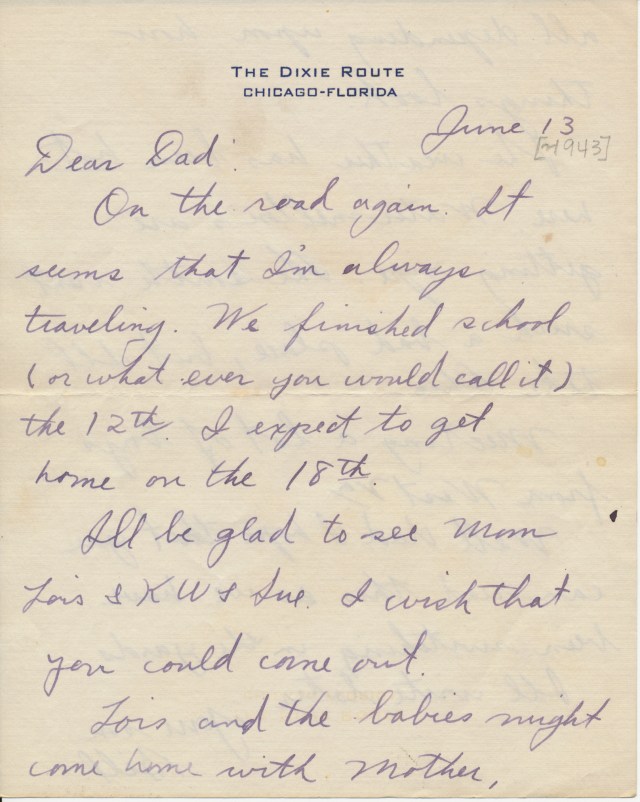 THE DIXIE ROUTE
CHICAGO-FLORIDA
June 13
[~1943]
Dear Dad:
On the road again. It
seems that I'm always
traveling. We finished school
(or what ever you would call it)
the 12th. I expect to get
home on the 18th.
I'll be glad to see Mom
Lois & KW & Sue. I wish that
you could come out.
Lois and the babies might
come home with Mother,